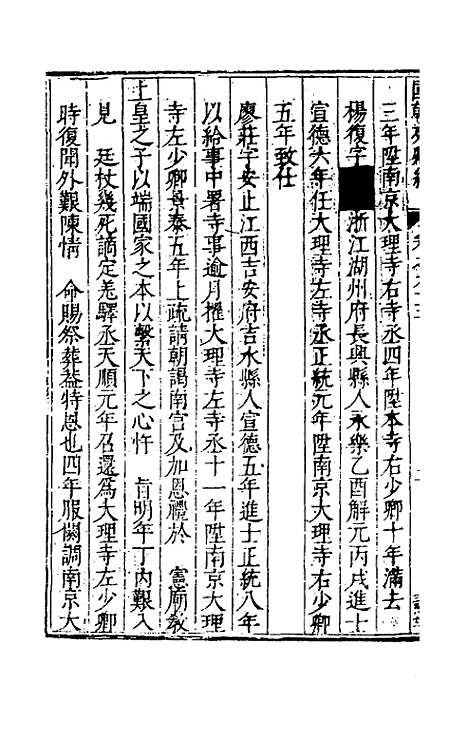 三年陞南京大理寺右寺丞四年陞本寺右少卿十年滿去
楊復字■浙江湖州府長興縣人永樂乙酉解元丙戌進士
宣德六年任大理寺左寺丞正統元年陞南京大理寺右少卿
五年致仕
廖莊字安止江西吉安府吉水縣人宣德五年進士正統八年
以給事中署寺事逾月擢大理寺左寺丞十一年陞南京大理
寺左少卿景泰五年上疏請朝謁南宮及加恩禮於 憲廟教
上皇之子以端國家之本以繫天下之心忤 旨明年丁內艱入
見 廷杖幾死謫定羗驛丞天順元年召還爲大理寺左少卿
時復聞外艱陳情 命賜祭葬葢特恩也四年服闋調南京大